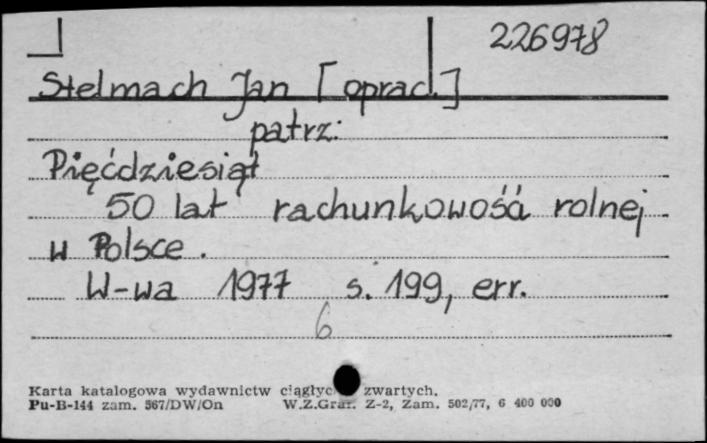 226978
Stelmach Jan [oprac.]
patrz:
Pięćdziesiąt
50 lat rachunkowośća rolnej
w Polsce.
W-wa 1977 s. 199, err.
6
Karta katalogowa wydawnictw zwartych.
Pu-B-144 zam. 567/DW/On W.Z.Graf. Z-2, Zam. 502/77, 6 400 000